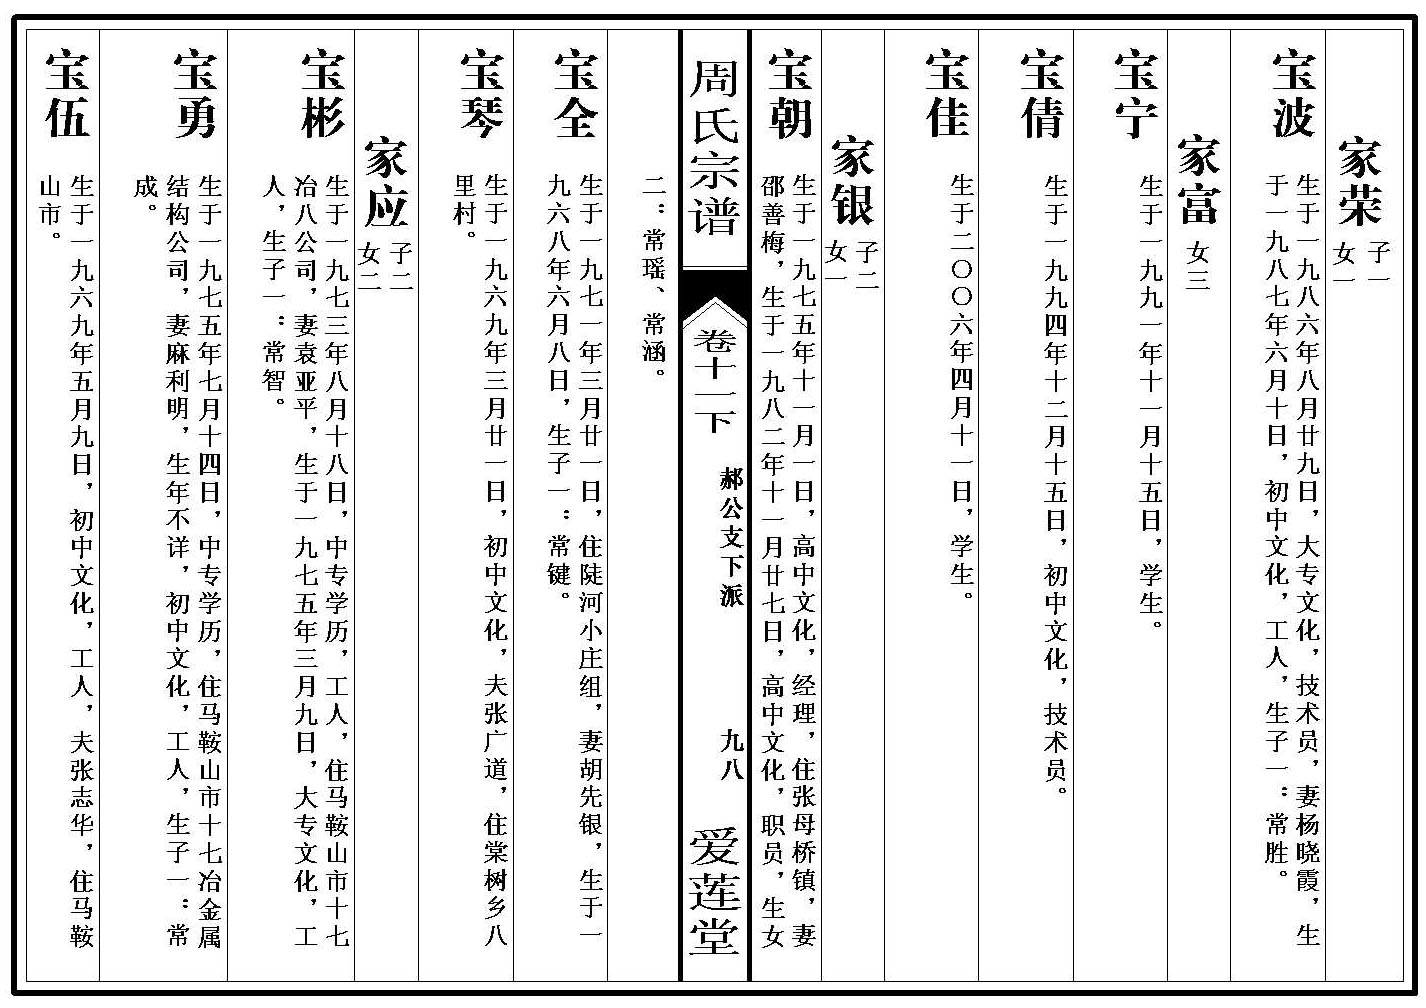 家荣 子一
女一
宝波 生于一九八六年八月廿九日，大专文化，技术员，妻杨晓霞，生
于一九八七年六月十日，初中文化，工人，生子一：常胜。
家富 女三
宝宁 生于一九九一年十一月十五日，学生。
宝倩 生于一九九四年十二月十五日，初中文化，技术员。
宝佳 生于二〇〇六年四月十一日，学生。
家银 子二
女一
宝朝 生于一九七五年十一月一日，高中文化，经理，住张母桥镇，妻
邵善梅，生于一九八二年十一月廿七日，高中文化，职员，生女
周氏宗谱 卷十二下 郝公支下派 九八 爱莲堂
二：常瑶、常涵。
宝全 生于一九七一年三月廿一日，住陡河小庄组，妻胡先银，生于一
九六八年六月八日，生子一：常键。
宝琴 生于一九六九年三月廿一日，初中文化，夫张广道，住棠树乡八
里村。
家应 子二
女二
宝彬 生于一九七三年八月十八日，中专学历，工人，住马鞍山市十七
冶八公司，妻袁亚平，生于一九七五年三月九日，大专文化，工
人，生子一：常智。
宝勇 生于一九七五年七月十四日，中专学历，住马鞍山市十七冶金属
结构公司，妻麻利明，生年不详，初中文化，工人，生子一：常
成。
宝伍 生于一九六九年五月九日，初中文化，工人，夫张志华，住马鞍
山市。